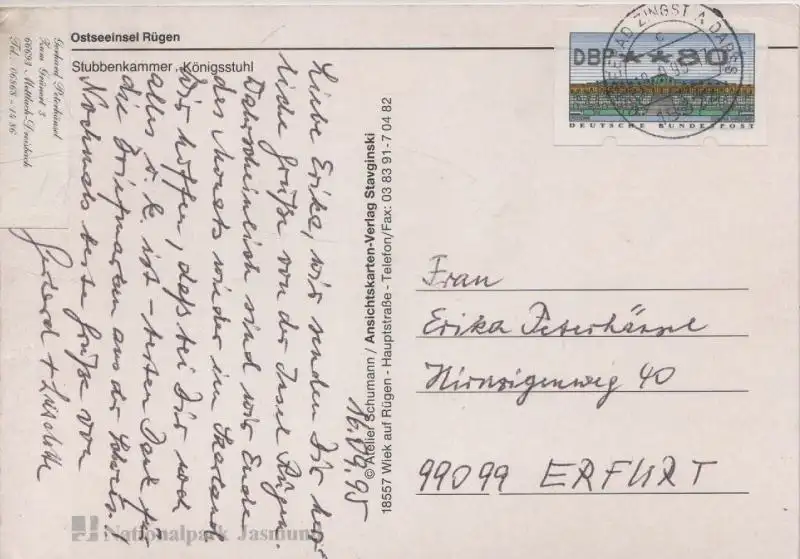 Ostseeinsel Rügen
Stubbenkammer, Königsstuhl
Gerhard Peterhänsel
66693 Mettlach-Dreisbach
Tel. 06868 - 14 86
16.09.95
Liebe Erika, wir senden Dir herz-
liche Grüße von der Insel Rügen.
Wahrscheinlich sind wir Ende
des Monats wieder im Saarland
Wir hoffen, daß bei Dir noch
alles o.k. ist - besten Dank für
die Briefmarken aus der Schweiz.
Nochmals beste Grüße von
Gerhard + Liselotte
© Atelier Schumann / Ansichtskarten-Verlag Stavginski
18557 Wiek auf Rügen - Hauptstraße - Telefon/Fax: 03 83 91-7 04 82
DBP**80
DEUTSCHE BUNDESPOST
ZINGST
Frau
Erika Peterhänsel
Hirnzigenweg 40
99099 ERFURT
Nationalpark Jasmund